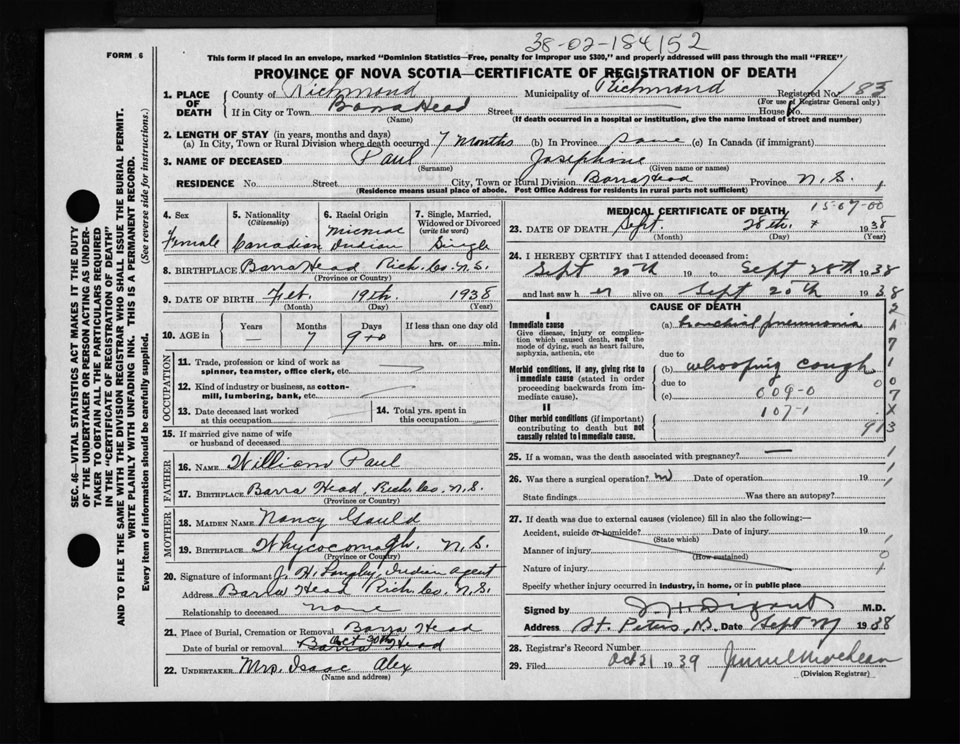 38-02-184152
FORM 6
This form if placed in an envelope, marked "Dominion Statistics—Free, penalty for improper use $300," and properly addressed will pass through the mail "FREE"
PROVINCE OF NOVA SCOTIA—CERTIFICATE OF REGISTRATION OF DEATH
1. PLACE OF DEATH County of Richmond Municipality of Richmond Registered No. 183
(For use of Registrar General only)
If in City or Town Barra Head Street House No.
(Name) (If death occurred in a hospital or institution, give the name instead of street and number)
2. LENGTH OF STAY (in years, months and days)
(a) In City, Town or Rural Division where death occurred 7 Months (b) In Province same (c) In Canada (if immigrant)
3. NAME OF DECEASED Paul Josephine
(Surname) (Given name or names)
RESIDENCE No. Street City, Town or Rural Division Barra Head Province N.S.
(Residence means usual place of abode. Post Office Address for residents in rural parts not sufficient)
4. Sex Female
5. Nationality (Citizenship) Canadian
6. Racial Origin Micmac Indian
7. Single, Married, Widowed or Divorced (write the word) Single
8. BIRTHPLACE Barra Head Rich. Co. N.S.
(Province or Country)
9. DATE OF BIRTH Feb. 19th. 1938
(Month) (Day) (Year)
10. AGE in Years — Months 7 Days 9 If less than one day old hrs. or min.
OCCUPATION
11. Trade, profession or kind of work as spinner, teamster, office clerk, etc.
12. Kind of industry or business, as cotton-mill, lumbering, bank, etc.
13. Date deceased last worked at this occupation
14. Total yrs. spent in this occupation
15. If married give name of wife or husband of deceased
FATHER
16. NAME William Paul
17. BIRTHPLACE Barra Head, Rich. Co. N.S.
(Province or Country)
MOTHER
18. MAIDEN NAME Nancy Gould
19. BIRTHPLACE Whycocomagh. N.S.
(Province or Country)
20. Signature of informant J. H. Langley Indian Agent
Address Barra Head Rich. Co. N.S.
Relationship to deceased none
21. Place of Burial, Cremation or Removal Barra Head
Date of burial or removal Barra Head
22. UNDERTAKER Mrs Isaac Alex
(Name and address)
MEDICAL CERTIFICATE OF DEATH 15-07-00
23. DATE OF DEATH Sept. 28th. 1938
(Month) (Day) (Year)
24. I HEREBY CERTIFY that I attended deceased from:
Sept 20th 19 to Sept 28th 1938
and last saw her alive on Sept 20th 1938
CAUSE OF DEATH
I
Immediate cause
Give disease, injury or complication which caused death, not the mode of dying, such as heart failure, asphyxia, asthenia, etc
(a) bronchial pneumonia
due to
Morbid conditions, if any, giving rise to immediate cause (stated in order proceeding backwards from immediate cause).
(b) whooping cough
due to
(c) 009-0
II
Other morbid conditions (if important) contributing to death but not causally related to immediate cause.
107-1
913
25. If a woman, was the death associated with pregnancy? —
26. Was there a surgical operation? no Date of operation 19
State findings Was there an autopsy?
27. If death was due to external causes (violence) fill in also the following:—
Accident, suicide or homicide? Date of injury 19
(State which)
Manner of injury
(How sustained)
Nature of injury
Specify whether injury occurred in industry, in home, or in public place
Signed by M.D.
Address St. Peters, Date Sept 1938
28. Registrar's Record Number
29. Filed Oct 31 1939
(Division Registrar)
SEC. 46—VITAL STATISTICS ACT MAKES IT THE DUTY
OF THE UNDERTAKER OR PERSON ACTING AS UNDERTAKER
TO OBTAIN ALL THE PARTICULARS REQUIRED
IN THE "CERTIFICATE OF REGISTRATION OF DEATH"
AND TO FILE THE SAME WITH THE DIVISION REGISTRAR WHO SHALL ISSUE THE BURIAL PERMIT.
WRITE PLAINLY WITH UNFADING INK. THIS IS A PERMANENT RECORD.
Every item of information should be carefully supplied. (See reverse side for instructions.)